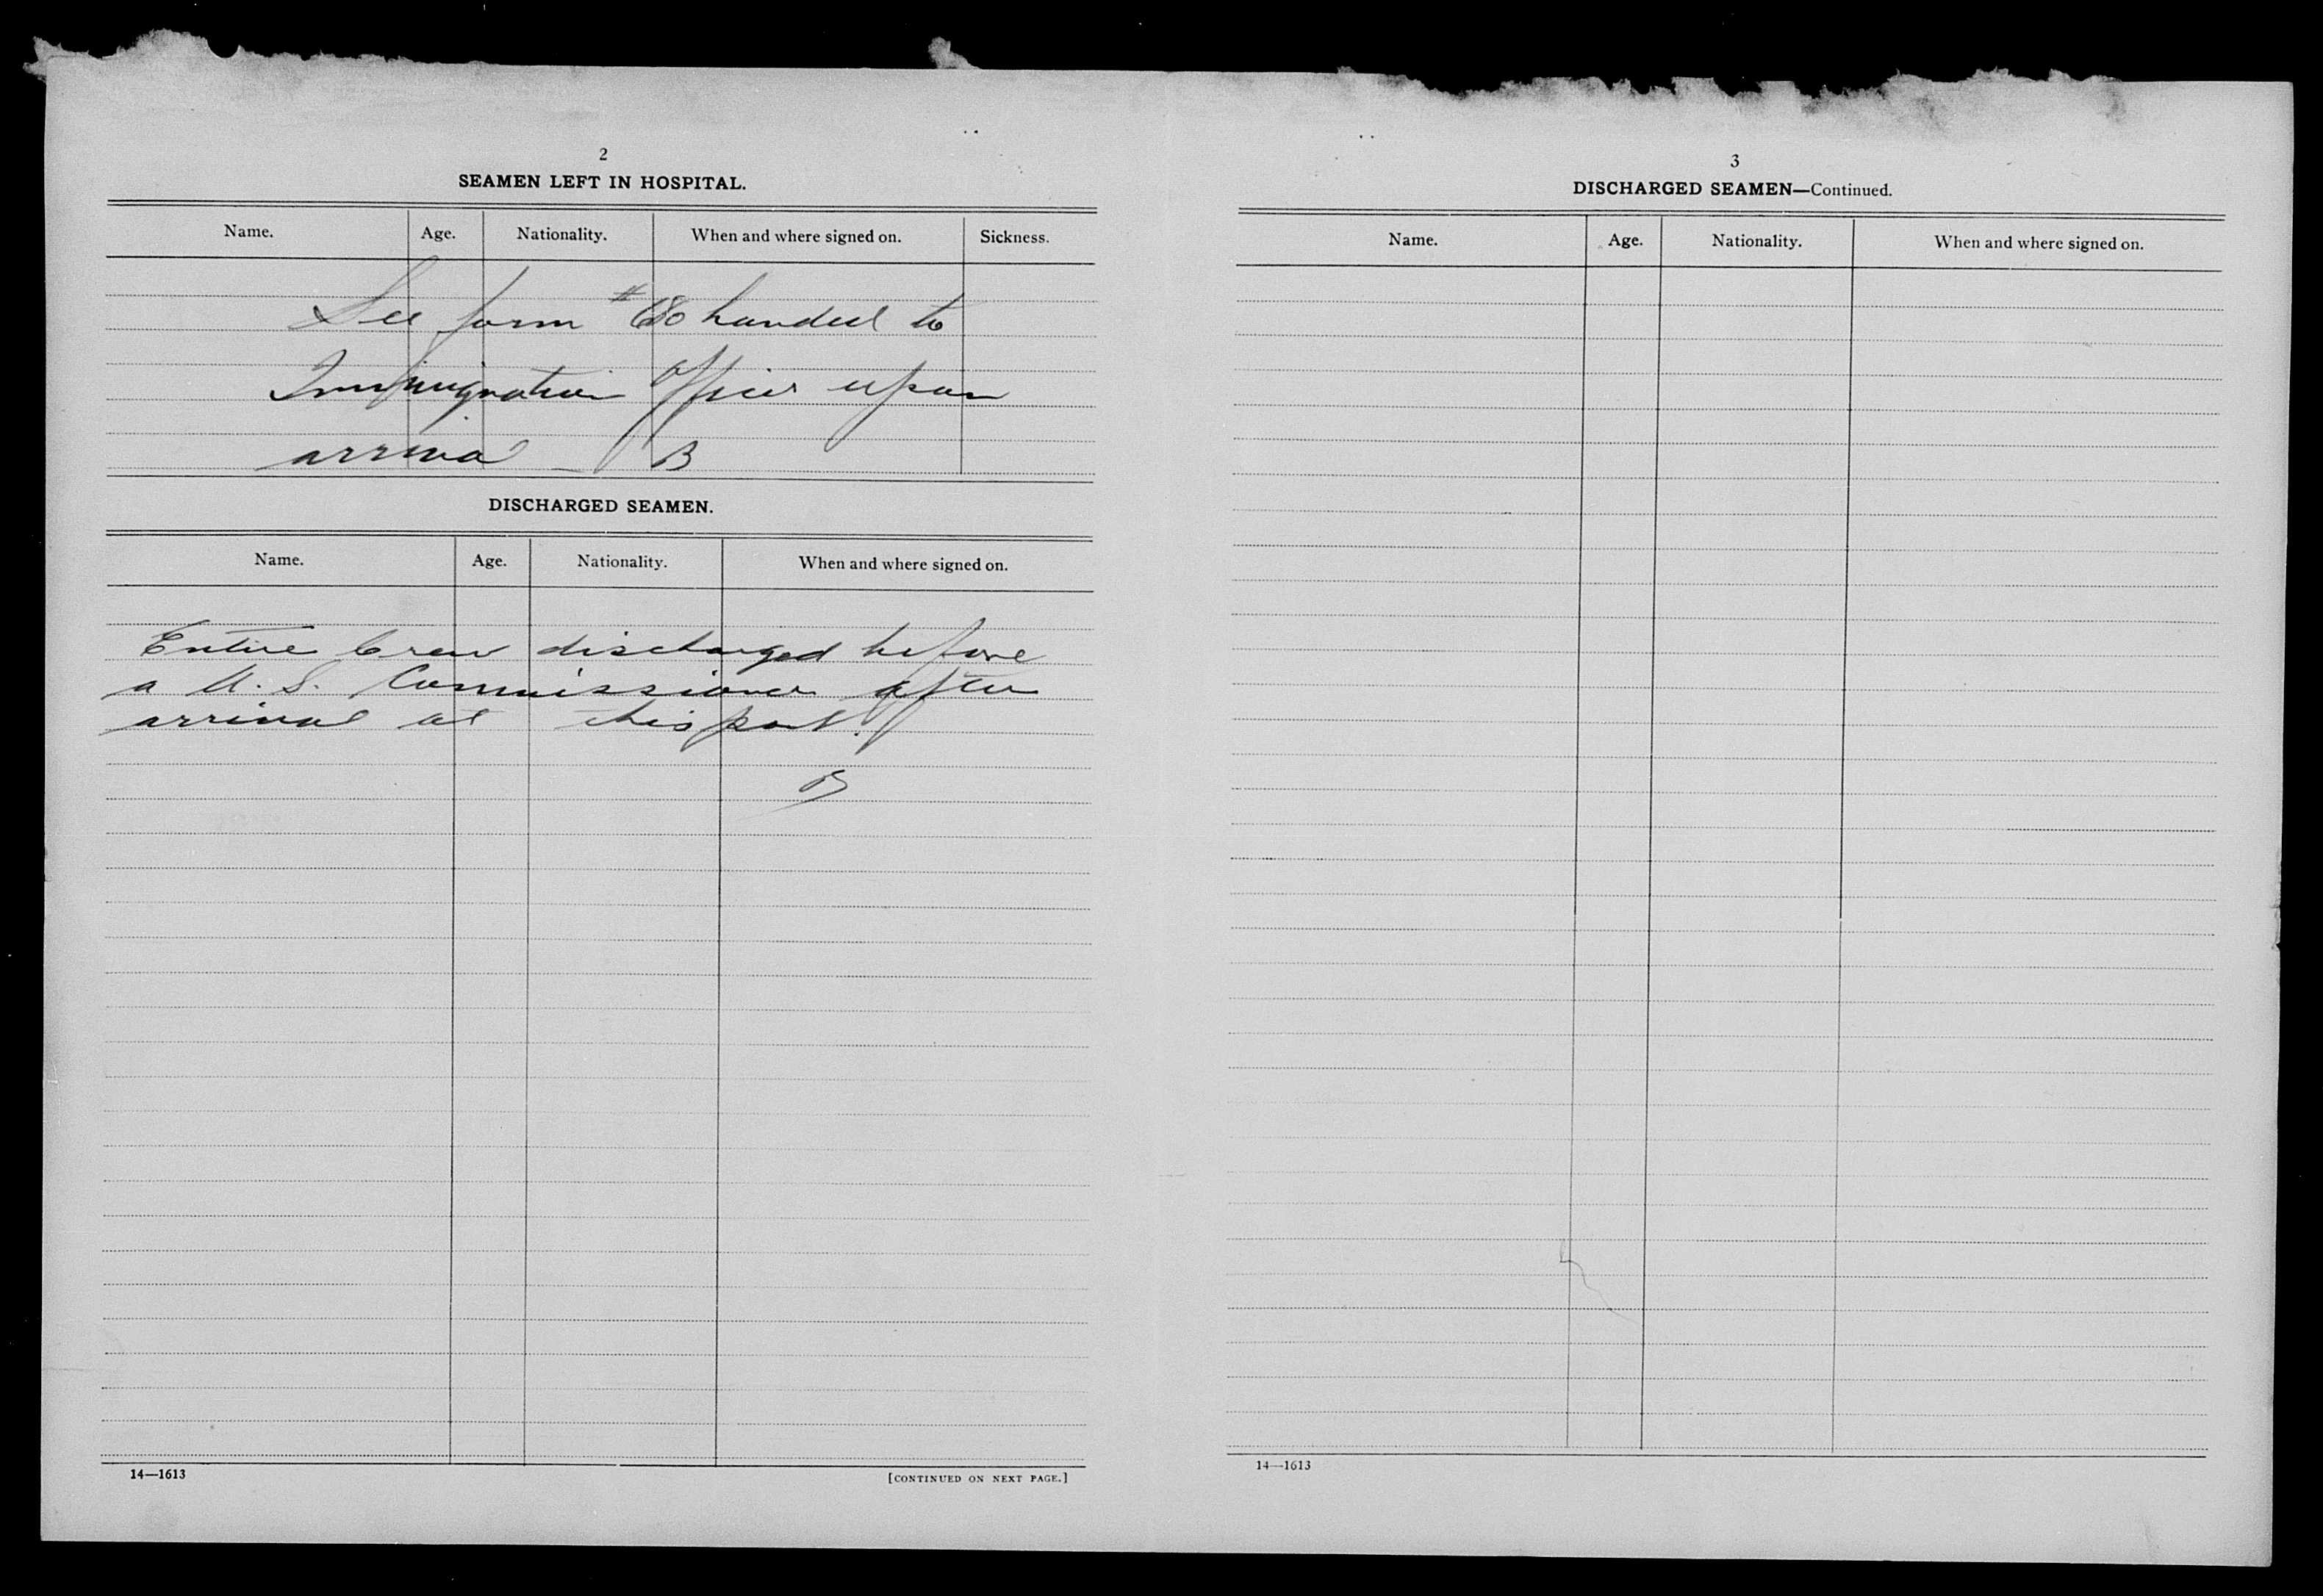 2
SEAMEN LEFT IN HOSPITAL.
Name. Age. Nationality. When and where signed on. Sickness.
See form #680 handed to
Immigration Officer upon
arrival B
DISCHARGED SEAMEN.
Name. Age. Nationality. When and where signed on.
Entire Crew discharged before
a U. S. Commissioner after
arrival at this port.
B
14—1613
[CONTINUED ON NEXT PAGE.]
3
DISCHARGED SEAMEN—Continued.
Name. Age. Nationality. When and where signed on.
14—1613